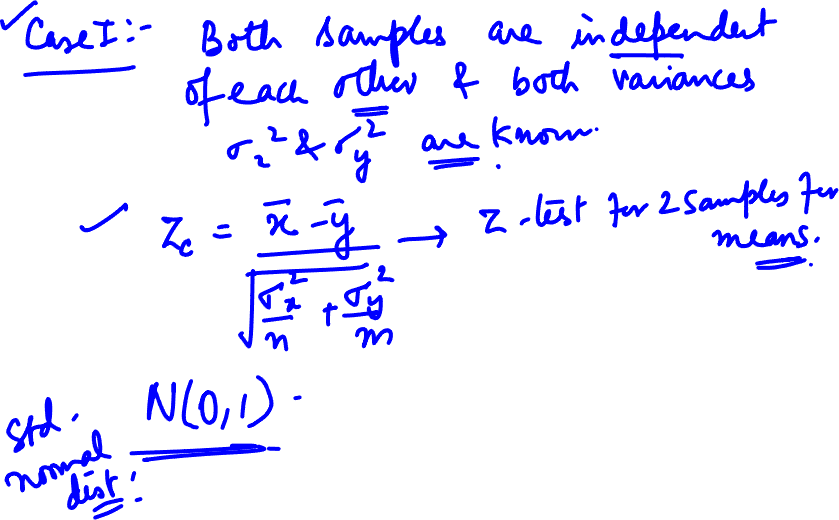 ✓ Case I :- Both samples are independent
of each other & both variances
σ_x² & σ_y² are known.
✓ Z_c = (x̄ - ȳ) / √(σ_x²/n + σ_y²/m) → Z-test for 2 samples for
means.
N(0,1).
Std.
normal
dist: